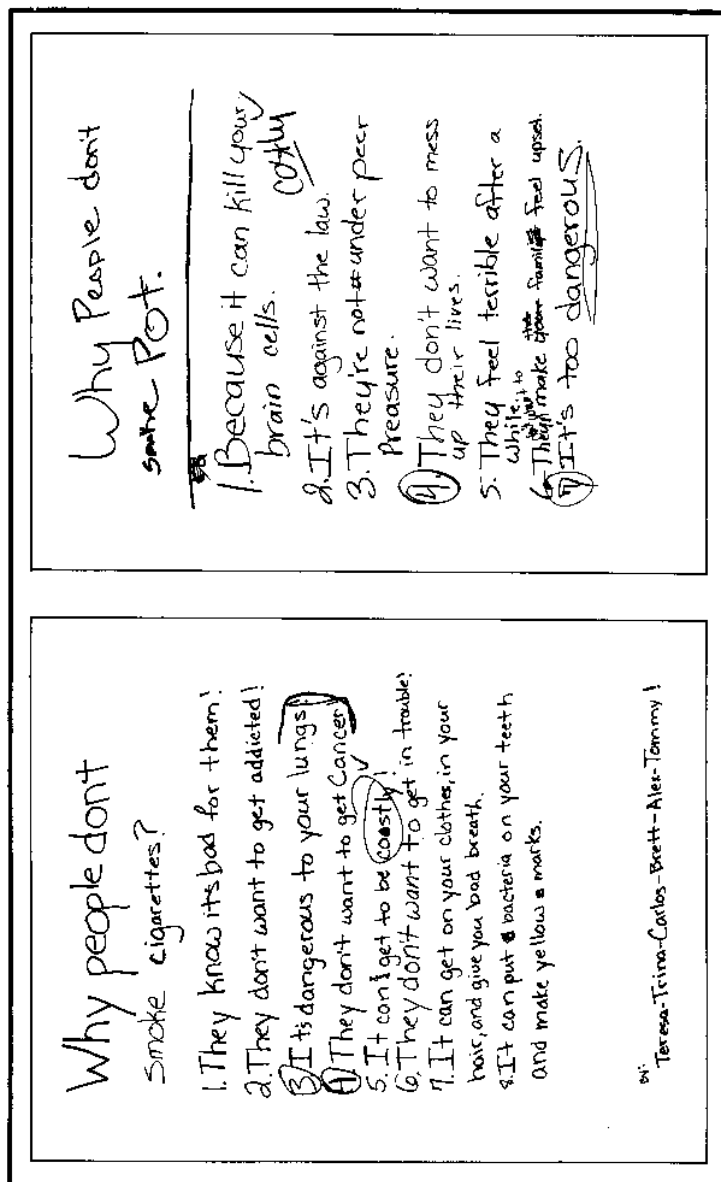 Why people dont
smoke cigarettes?
1. They know its bad for them!
2. They don't want to get addicted!
3 Its dangerous to your lungs!
4 They don't want to get Cancer
5. It can get to be coostly!
6. They don't want to get in trouble!
7. It can get on your clothes, in your
hair, and give you bad breath.
8. It can put bacteria on your teeth
and make yellow marks.
BY:
Teresa-Trina-Carlos-Brett-Alex-Tommy!
Why People don't
smoke POt.
1. Because it can kill your
brain cells.
costly
2. It's against the law.
3. They're not under peer
Preasure.
4. They don't want to mess
up their lives.
5. They feel terrible after a
while.
6. They make family feel upset.
7 It's too dangerous.